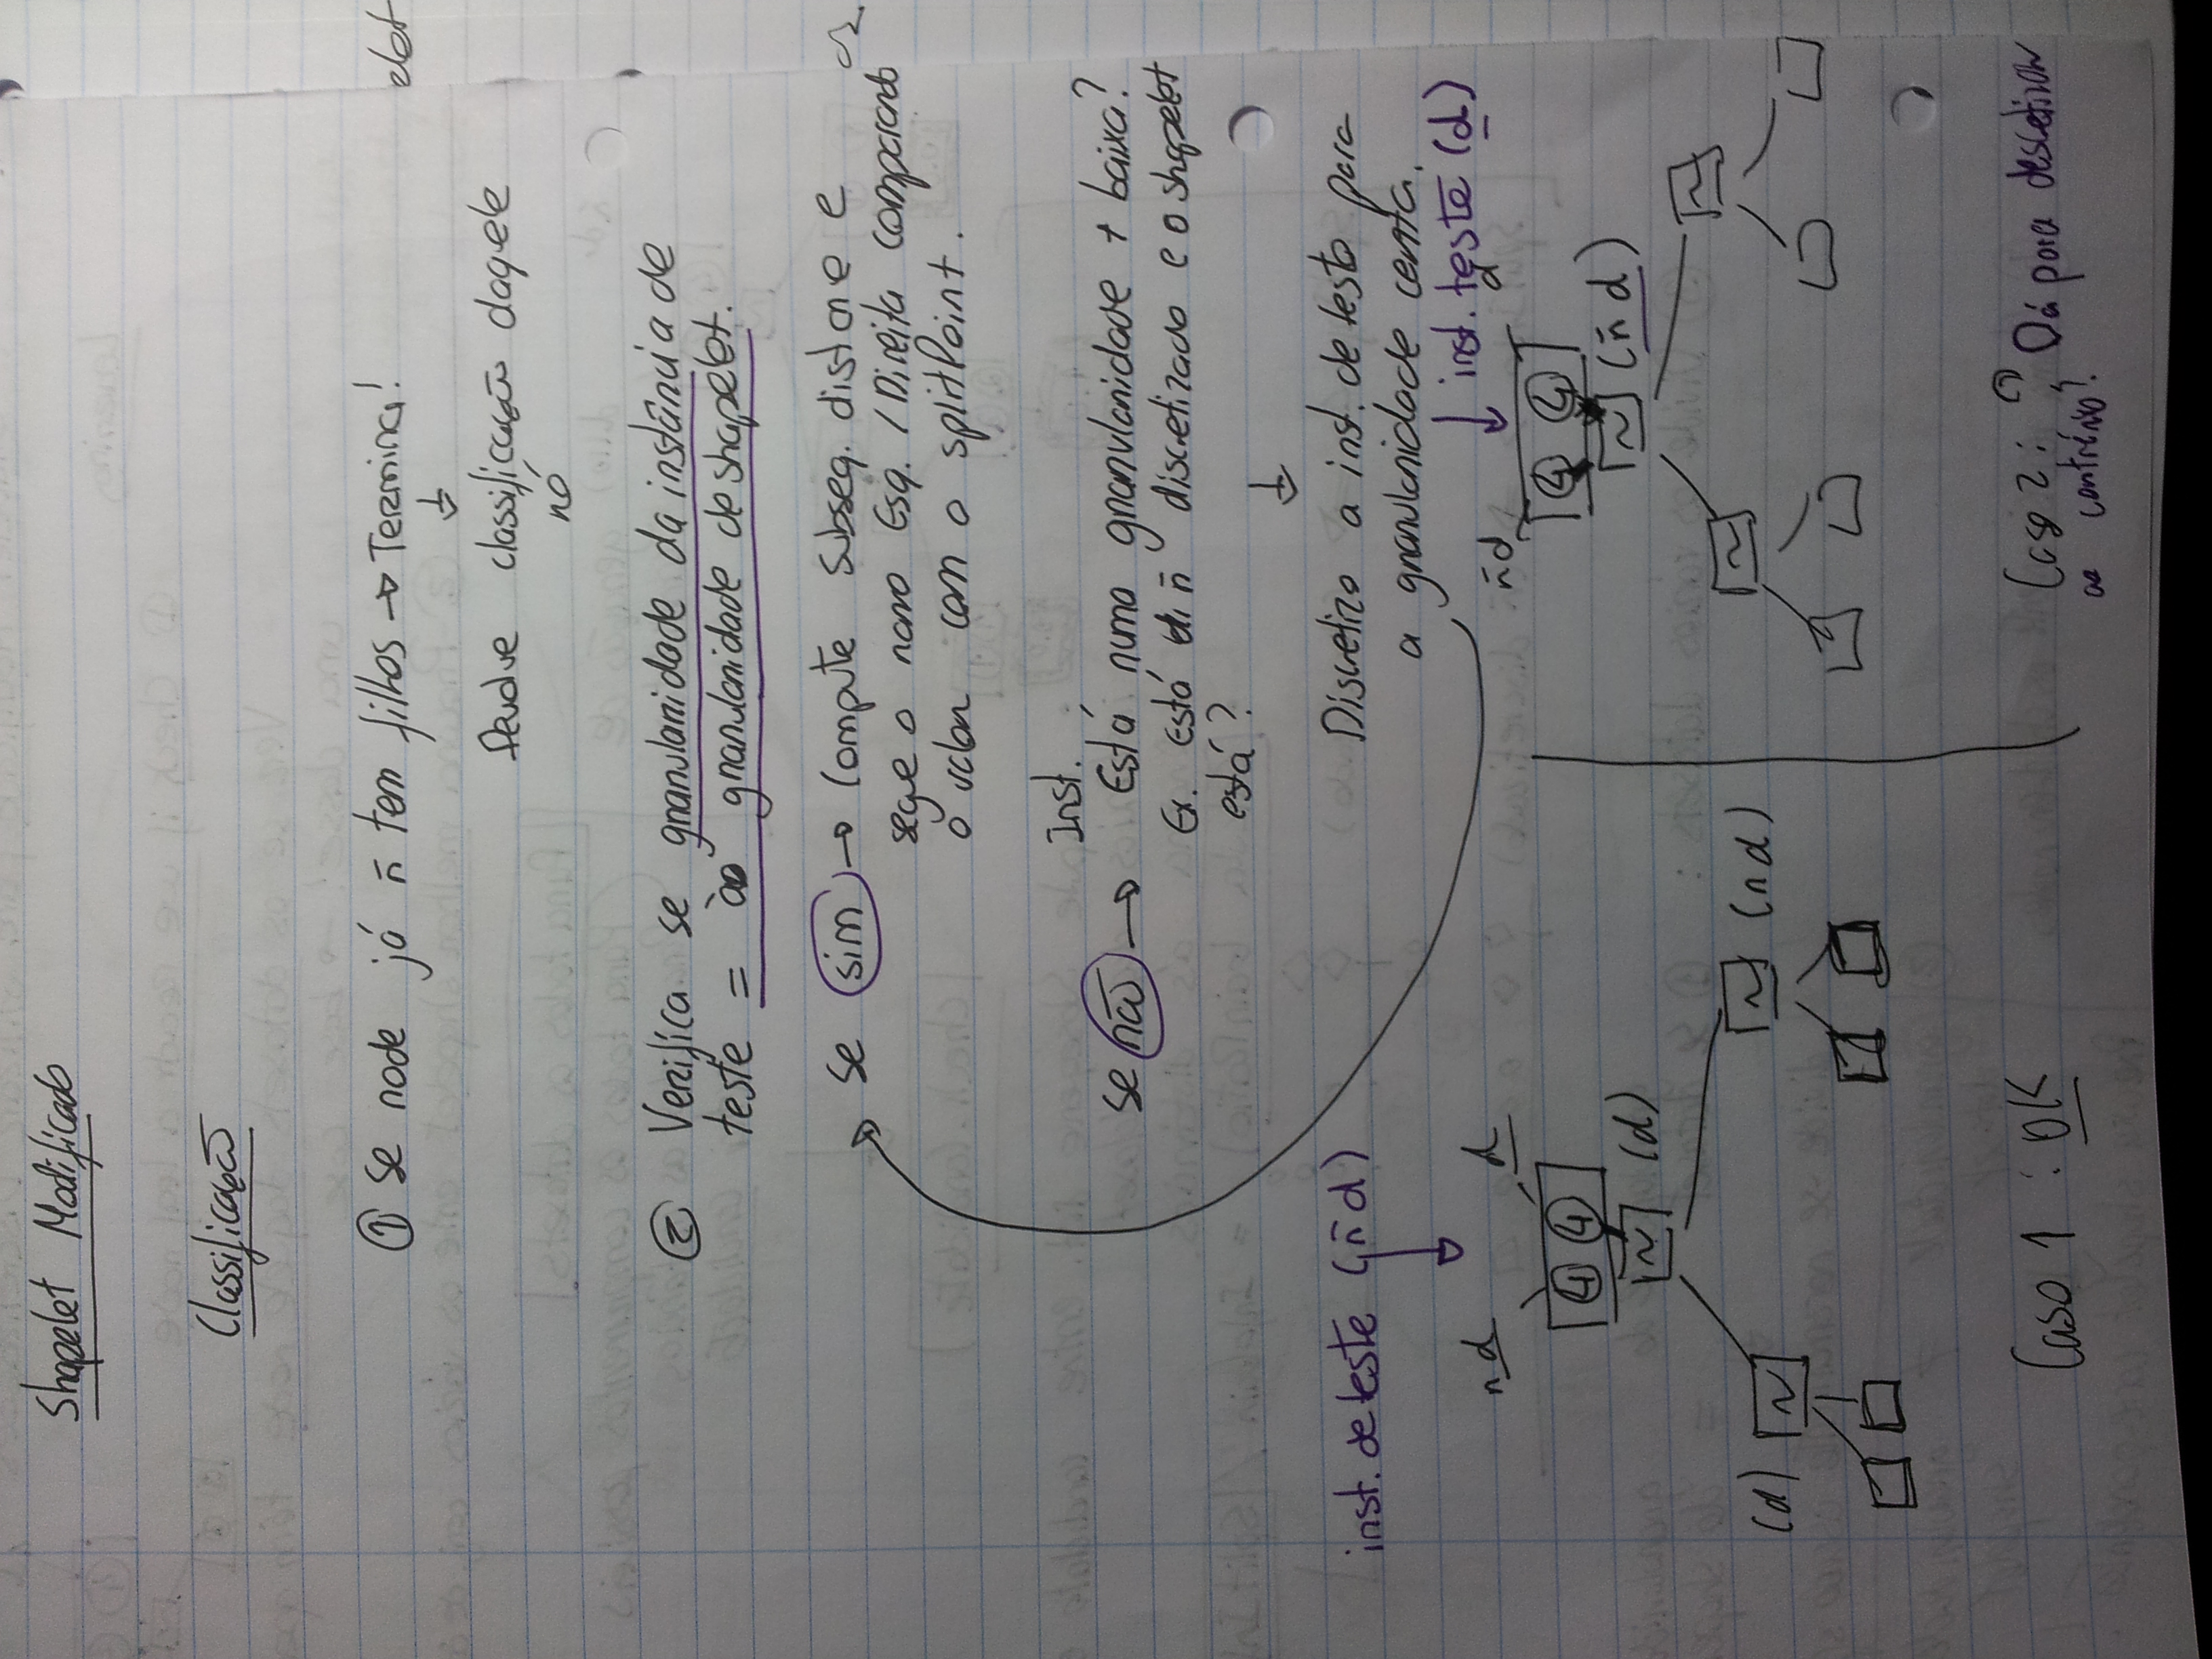 Shapelet Modificado
Classificação
① Se node já ñ tem filhos → Termina!
Devolve classificação daquele
nó
② Verifica se granularidade da instância de
teste = à granularidade de shapelet.
se sim → Compute Subseq. distance e
segue o ramo Esq. / Direita comparando
o valor com o splitPoint.
Inst.
se não → Está numa granularidade + baixa?
Ex. Está ñ discretizado e o shapelet
está?
Discretizo a inst. de teste para
a granularidade certa.
inst. de teste (ñ d)
inst. teste (d)
nd d
ñd d
4 4
4 4
~ (d)
~ (ñ d)
(d) ~
~ (nd)
~
~
Caso 1 : OK
Caso 2 : ? Dá para descetizar
ao contrário?
elet